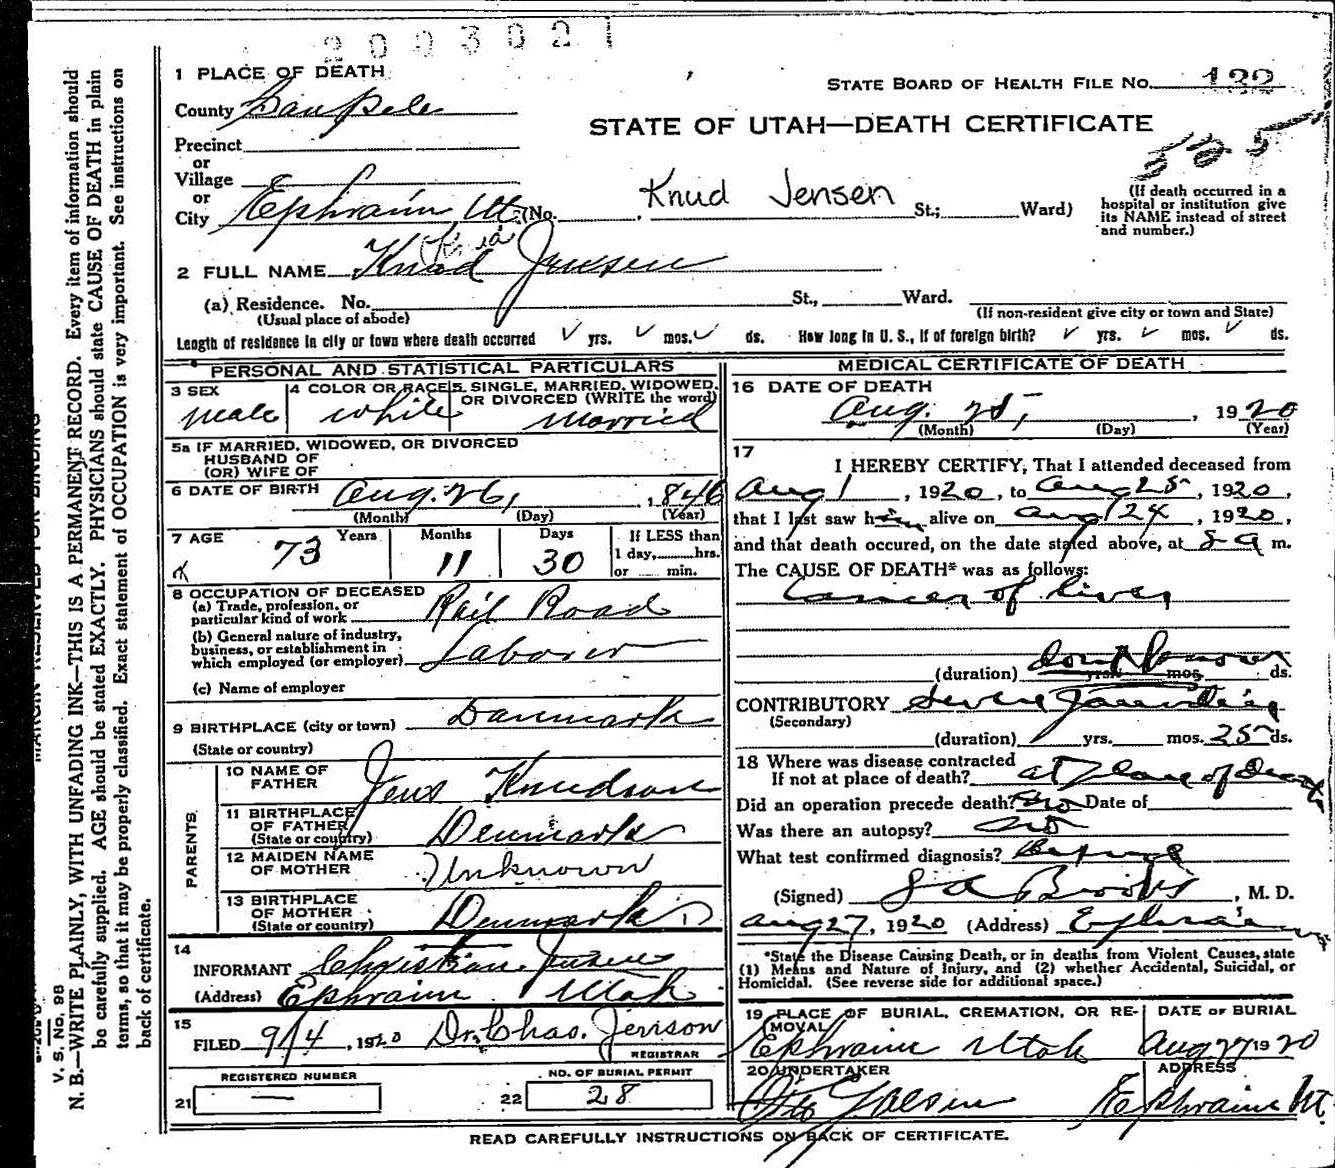 2003021
1 PLACE OF DEATH
STATE BOARD OF HEALTH FILE No. 132
County SanPete
STATE OF UTAH—DEATH CERTIFICATE
525
Precinct
or
Village
or
City Ephraim Ut. (No. , Knud Jensen St.; Ward)
(If death occurred in a
hospital or institution give
its NAME instead of street
and number.)
2 FULL NAME Knud Jensen
(a) Residence. No. St., Ward.
(Usual place of abode)
(If non-resident give city or town and State)
Length of residence in city or town where death occurred yrs. mos. ds. How long in U. S., if of foreign birth? yrs. mos. ds.
PERSONAL AND STATISTICAL PARTICULARS
3 SEX
male
4 COLOR OR RACE
white
5. SINGLE, MARRIED, WIDOWED,
OR DIVORCED (WRITE the word)
Married
5a IF MARRIED, WIDOWED, OR DIVORCED
HUSBAND OF
(OR) WIFE OF
6 DATE OF BIRTH Aug. 26, , 1846
(Month) (Day) (Year)
7 AGE 73 Years 11 Months 30 Days
If LESS than
1 day, hrs.
or min.
8 OCCUPATION OF DECEASED
(a) Trade, profession, or
particular kind of work Rail Road
(b) General nature of industry,
business, or establishment in
which employed (or employer) Laborer
(c) Name of employer
9 BIRTHPLACE (city or town) Danmark
(State or country)
PARENTS
10 NAME OF
FATHER Jens Knudson
11 BIRTHPLACE
OF FATHER
(State or country) Denmark
12 MAIDEN NAME
OF MOTHER Unknown
13 BIRTHPLACE
OF MOTHER
(State or country) Denmark
14
INFORMANT Christian Jensen
(Address) Ephraim Utah
15
FILED 9/4, 1920 Dr. Chas. Jenson
REGISTRAR
REGISTERED NUMBER
21 —
NO. OF BURIAL PERMIT
22 28
MEDICAL CERTIFICATE OF DEATH
16 DATE OF DEATH
Aug. 25, , 1920
(Month) (Day) (Year)
17
I HEREBY CERTIFY, That I attended deceased from
Aug 1, 1920, to Aug 25, 1920,
that I last saw him alive on Aug 24, 1920,
and that death occured, on the date stated above, at 8 a m.
The CAUSE OF DEATH* was as follows:
Cancer of liver
(duration) dont know yrs. mos. ds.
CONTRIBUTORY Severe Jaundice
(Secondary)
(duration) yrs. mos. 25 ds.
18 Where was disease contracted
If not at place of death? at place of death
Did an operation precede death? no Date of
Was there an autopsy? no
What test confirmed diagnosis?
(Signed) Brooks, M. D.
Aug 27, 1920 (Address) Ephraim
*State the Disease Causing Death, or in deaths from Violent Causes, state
(1) Means and Nature of Injury, and (2) whether Accidental, Suicidal, or
Homicidal. (See reverse side for additional space.)
19 PLACE OF BURIAL, CREMATION, OR RE-
MOVAL
Ephraim Utah
DATE OF BURIAL
Aug 27 1920
20 UNDERTAKER
ADDRESS
Ephraim Ut.
READ CAREFULLY INSTRUCTIONS ON BACK OF CERTIFICATE.
V. S. No. 98
N. B.—WRITE PLAINLY, WITH UNFADING INK—THIS IS A PERMANENT RECORD. Every item of information should
be carefully supplied. AGE should be stated EXACTLY. PHYSICIANS should state CAUSE OF DEATH in plain
terms, so that it may be properly classified. Exact statement of OCCUPATION is very important. See instructions on
back of certificate.